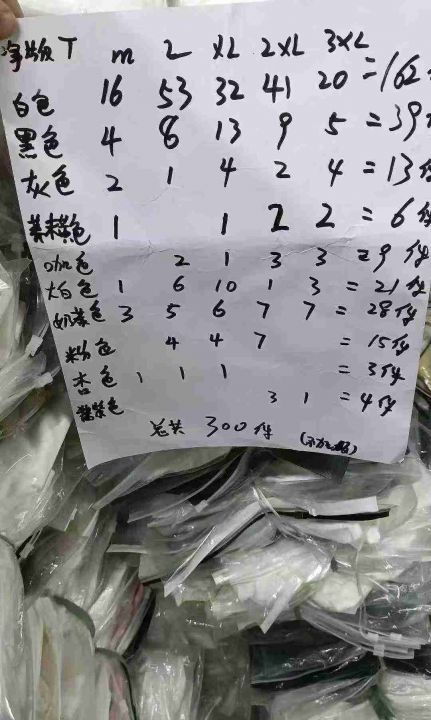 净版 T m L XL 2XL 3XL
白色 16 53 32 41 20 =162
黑色 4 8 13 9 5 =39
灰色 2 1 4 2 4 =13件
色 1 1 2 2 =6件
咖色 2 1 3 3 =9件
大白色 1 6 10 1 3 =21件
奶茶色 3 5 6 7 7 =28件
粉色 4 4 7 =15件
杏色 1 1 1 =3件
色 3 1 =4件
总共 300件